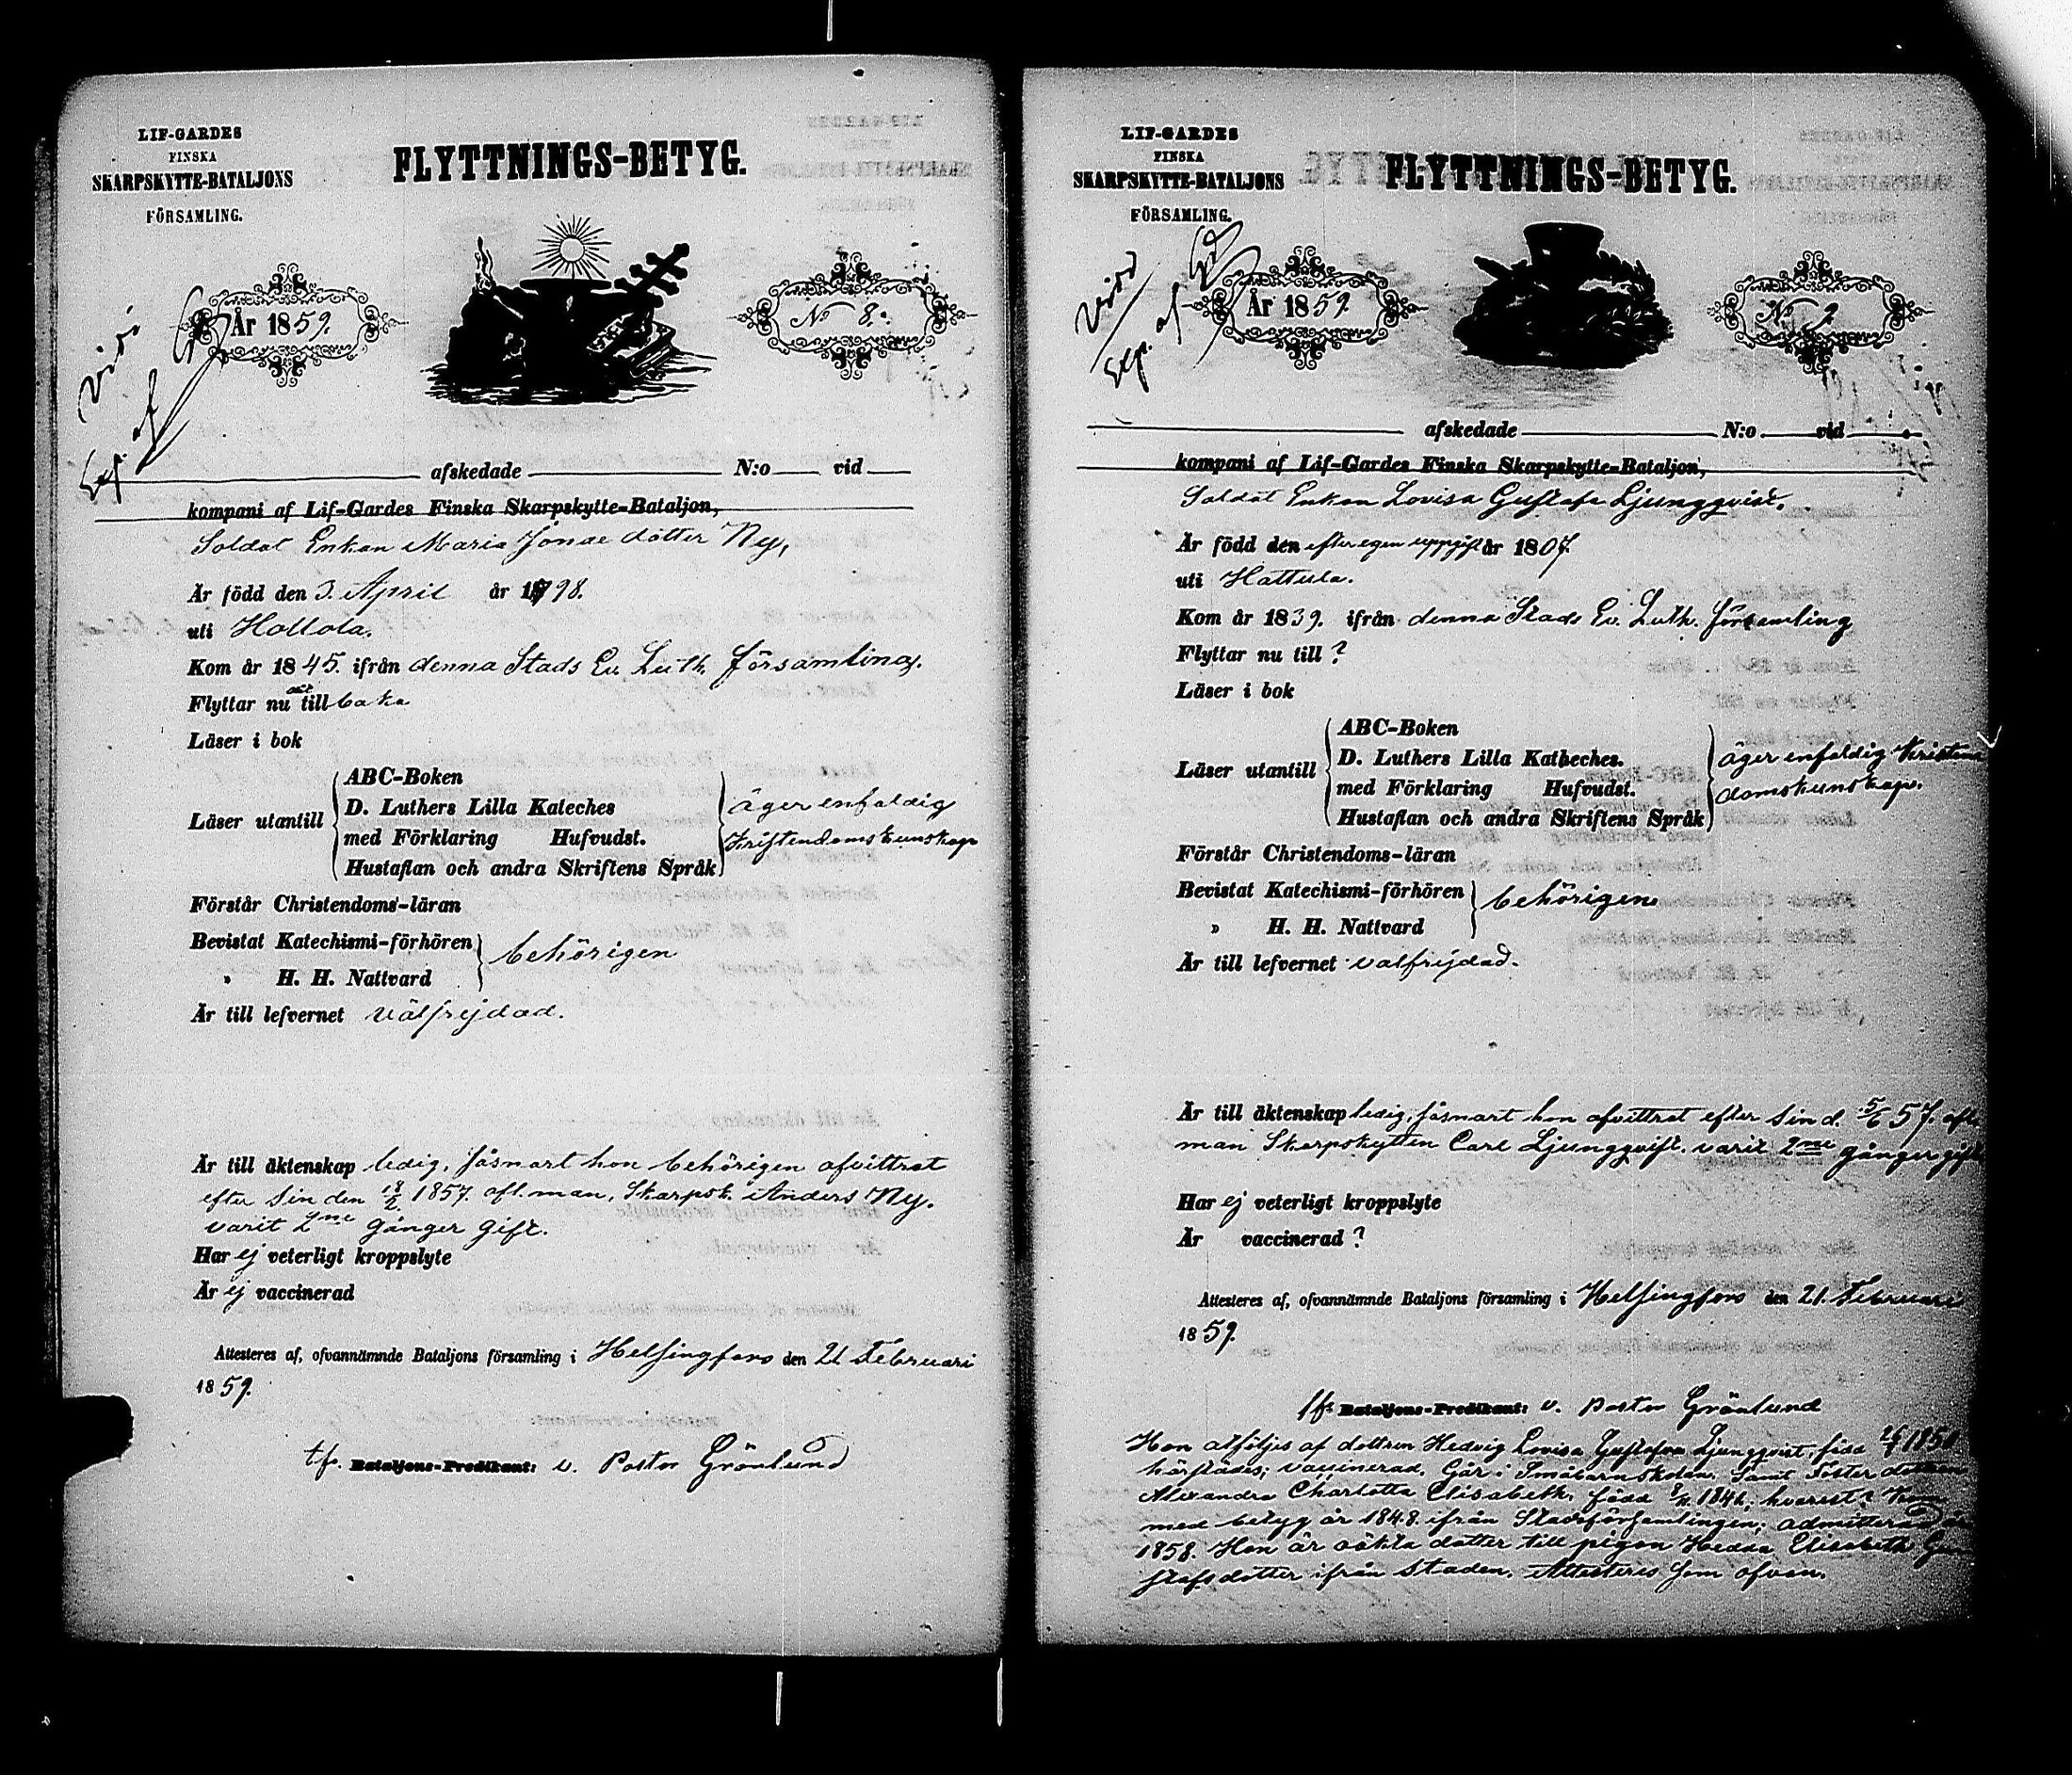 LIF-GARDES
FINSKA
SKARPSKYTTE-BATALJONS
FÖRSAMLING.
FLYTTNINGS-BETYG.
År 1859.
No 8.
Exp. af
afskedade N:o vid
kompani af Lif-Gardes Finska Skarpskytte-Bataljon,
Soldat Enkan Maria Jonae dotter Ny,
Är född den 3. April år 1798.
uti Hollola.
Kom år 1845. ifrån denna Stads Ev. Luth. församling.
Flyttar nu till baka
Läser i bok
Läser utantill
ABC-Boken
D. Luthers Lilla Kateches
med Förklaring Hufvudst.
Hustaflan och andra Skriftens Språk
äger enfaldig
Kristendomskunskap
Förstår Christendoms-läran
Bevistat Katechismi-förhören
» H. H. Nattvard
behörigen
Är till lefvernet välfrejdad.
Är till äktenskap ledig, såsnart hon behörigen afvittrat
efter sin den 18/2 1857. afl. man, Skarpsk. Anders Ny.
varit 2ne gånger gift.
Har ej veterligt kroppslyte
Är ej vaccinerad
Attesteres af, ofvannämnde Bataljons församling i Helsingfors den 21 Februari
1859.
tf. Bataljons-Predikant: v. Pastor Grönlund
LIF-GARDES
FINSKA
SKARPSKYTTE-BATALJONS
FÖRSAMLING.
FLYTTNINGS-BETYG.
År 1859.
No 9.
Exp. af
afskedade N:o vid
kompani af Lif-Gardes Finska Skarpskytte-Bataljon,
Soldat Enkan Lovisa Gustafva Ljungqvist.
Är född den efter egen uppgift år 1807.
uti Hattula.
Kom år 1839. ifrån denna Stads Ev. Luth. församling
Flyttar nu till ?
Läser i bok
Läser utantill
ABC-Boken
D. Luthers Lilla Katheches.
med Förklaring Hufvudst.
Hustaflan och andra Skriftens Språk
äger enfaldig Kristen
domskunskap.
Förstår Christendoms-läran
Bevistat Katechismi-förhören
» H. H. Nattvard
behörigen
Är till lefvernet välfrejdad.
Är till äktenskap ledig, såsnart hon afvittrat efter sin d. 5/6 57. afl.
man Skarpskytten Carl Ljungqvist. varit 2ne gånger gift
Har ej veterligt kroppslyte
Är vaccinerad ?
Attesteres af, ofvannämnde Bataljons församling i Helsingfors den 21. Februari
1859.
tf. Bataljons-Predikant: v. Pastor Grönlund
Hon åtföljes af dottren Hedvig Lovisa Gustafva Ljungqvist, född 1850
härstädes; vaccinerad. Går i Småbarnskolan. Samt Foster dottren
Alexandra Charlotta Elisabeth, född hvarest ?
med betyg år 1848. ifrån Stadsförsamlingen; admitterad
1858. Hon är oäkta dotter till pigan Hedda Elisabeth Gu
stafsdotter ifrån staden. Attesteres som ofvan.